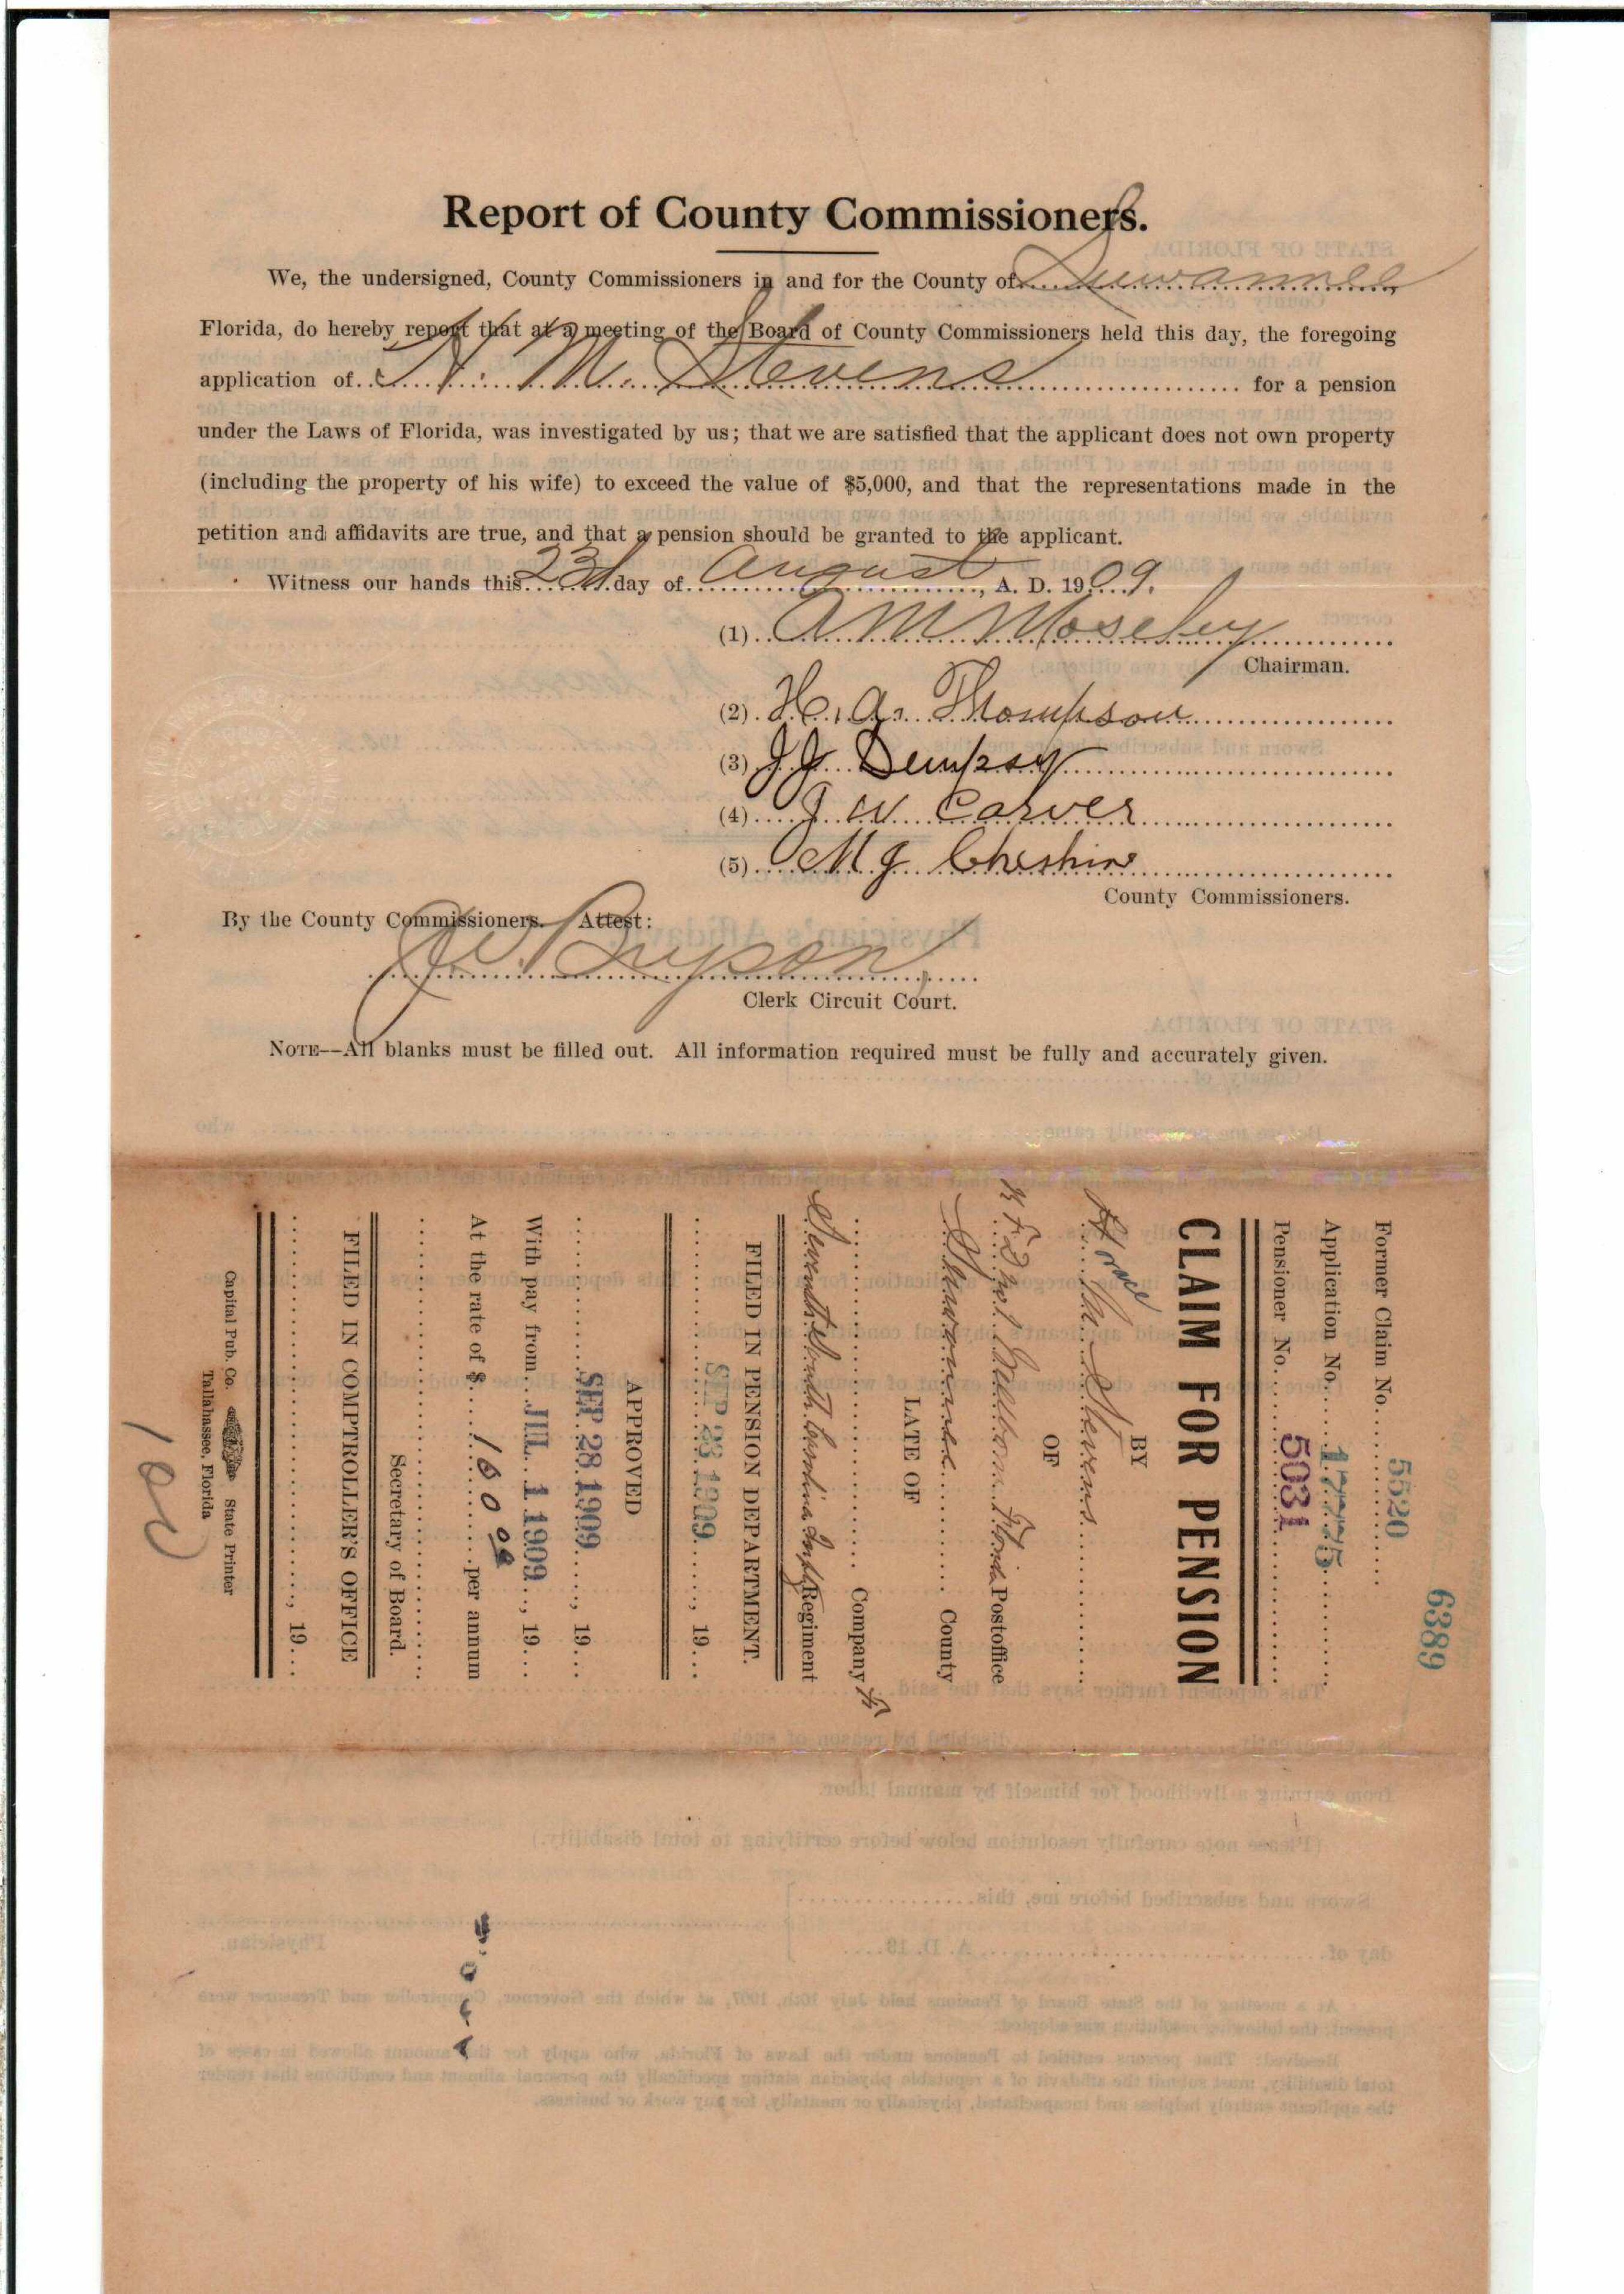 Report of County Commissioners.
We, the undersigned, County Commissioners in and for the County of Suwannee,
Florida, do hereby report that at a meeting of the Board of County Commissioners held this day, the foregoing
application of H. M. Stevens for a pension
under the Laws of Florida, was investigated by us; that we are satisfied that the applicant does not own property
(including the property of his wife) to exceed the value of $5,000, and that the representations made in the
petition and affidavits are true, and that a pension should be granted to the applicant.
Witness our hands this 23d day of August, A. D. 1909.
(1) A M Moseley
Chairman.
(2) H. A. Thompson
(3) J J Dempsy
(4) J W Carver
(5) M J Cheshire
County Commissioners.
By the County Commissioners. Attest:
Bryson
Clerk Circuit Court.
NOTE--All blanks must be filled out. All information required must be fully and accurately given.
6389
Former Claim No. 5520
Application No. 1775
Pensioner No. 5031
CLAIM FOR PENSION
BY
Horace M. Stevens
OF
R F D No 1 Wellborn Florida Postoffice
Suwannee County
LATE OF
Company K
Seventh South Carolina Infty Regiment
FILED IN PENSION DEPARTMENT.
SEP 23 1909, 19
APPROVED
SEP 28 1909, 19
With pay from JUL 1 1909, 19
At the rate of $ 100 00 per annum
Secretary of Board.
FILED IN COMPTROLLER'S OFFICE
, 19
Capital Pub. Co. State Printer
Tallahassee, Florida
100